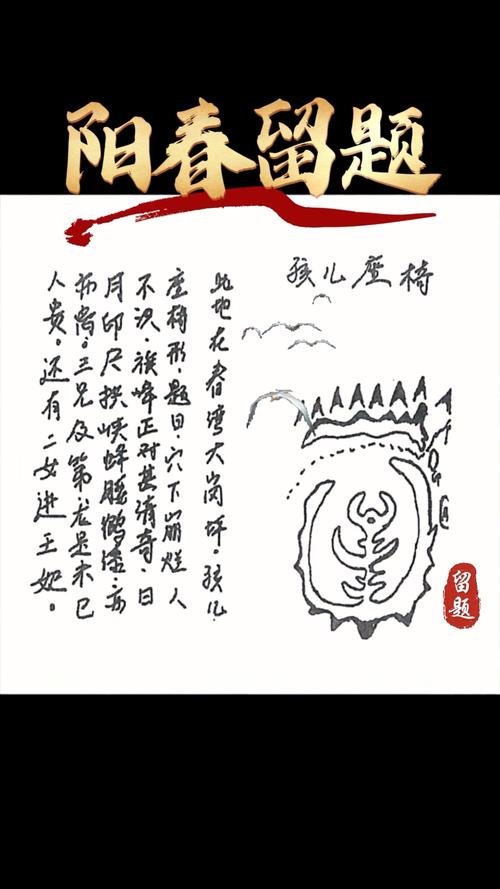 阳春留题
孩儿座椅
此地在春湾大岗坪。孩儿
座椅形，题曰，穴下崩烂人
不识，旗峰正对甚清奇，日
月印尺拱峡蜂腰鹤，亦
离，三兄及第是未已
人贵。还有二女进王妃。
留题